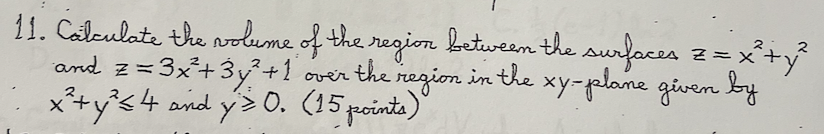 11. Calculate the volume of the region between the surfaces z = x²+y²
and z = 3x²+3y²+1 over the region in the xy-plane given by
x²+y²≤4 and y≥0. (15 points)